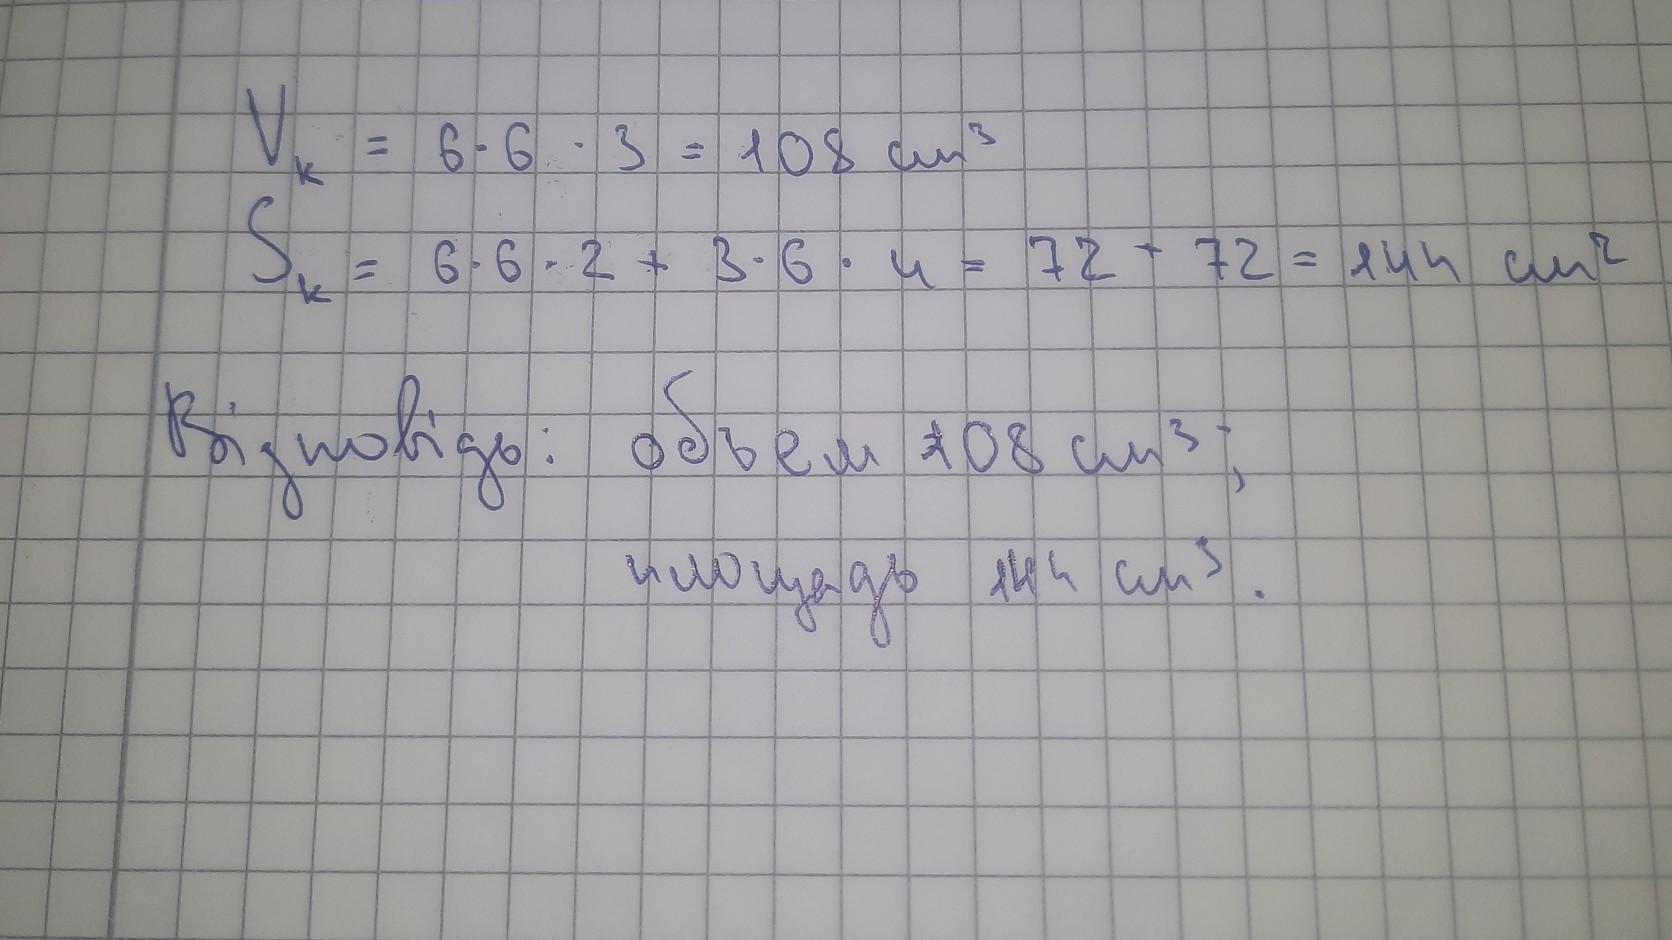 Vк = 6·6·3 = 108 см³
Sк = 6·6·2 + 3·6·4 = 72 + 72 = 144 см²
Відповідь: объем 108 см³;
площадь 144 см³.